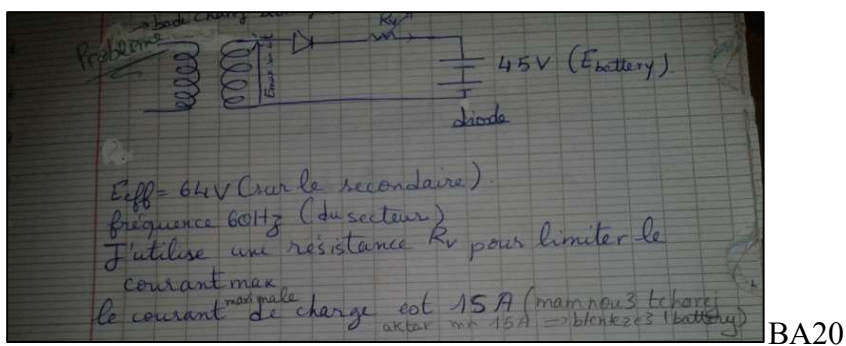 Problème
Rv
45V (Ebattery).
diode
Eeff = 64V (sur le secondaire)
fréquence 60Hz (du secteur)
J'utilise une résistance Rv pour limiter le
courant max
le courant maximale de charge est 15A (mamnou3 tcharej
aktar mn 15A => btenkeze3 l battery)
BA20